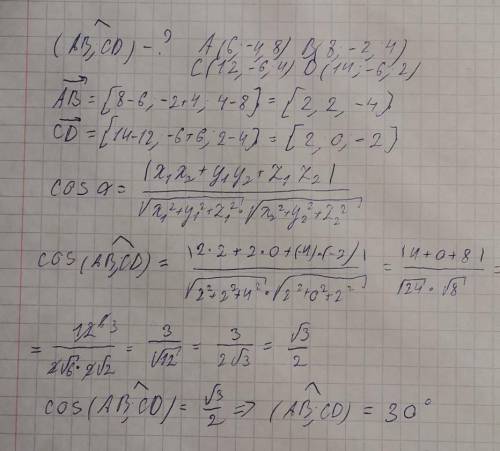 (AB,^CD) - ? A(6;-4;8) B(8;-2;4)
C(12;-6;4) D(14;-6;2)
AB = {8-6; -2+4; 4-8} = {2; 2; -4}
CD = {14-12; -6+6; 2-4} = {2; 0; -2}
cos α = |x₁x₂+y₁y₂+z₁z₂| / √(x₁²+y₁²+z₁²) · √(x₂²+y₂²+z₂²)
cos(AB;^CD) = |2·2+2·0+(-4)·(-2)| / √(2²+2²+4²) · √(2²+0²+2²) = |4+0+8| / √24 · √8 =
= 12⁶ ³ / 2√6·2√2 = 3/√12 = 3/2√3 = √3/2
cos(AB;^CD) = √3/2 => (AB;^CD) = 30°